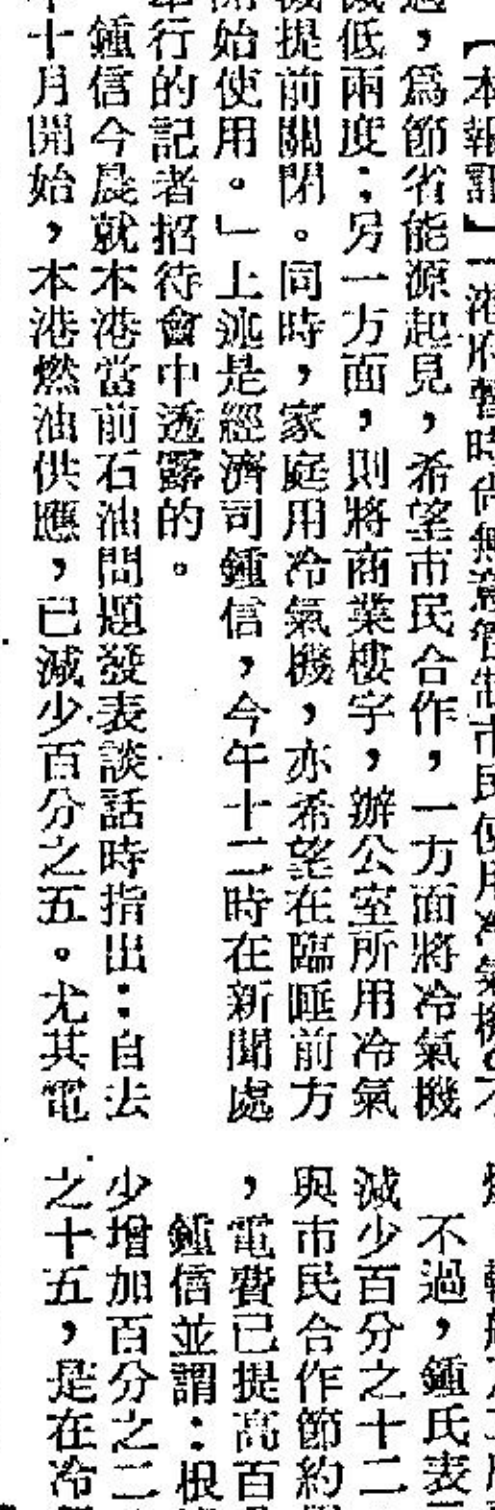 【本報訊】「港府暫時尚無意管制市民使用冷氣機。不
過，爲節省能源起見，希望市民合作，一方面將冷氣機
低兩度；另一方面，則將商業樓宇，辦公室所用冷氣
機提前關閉。同時，家庭用冷氣機，亦希望在臨睡前方
開始使用。」上述是經濟司鍾信，今午十二時在新聞處
舉行的記者招待會中透露的。
鍾信今晨就本港當前石油問題發表談話時指出：自去
年十月開始，本港燃油供應，已減少百分之五。尤其電
不過，鍾氏表
減少百分之十二
與市民合作節約
，電費已提高百
鍾信並謂：根
少增加百分之二
之十五，是在冷